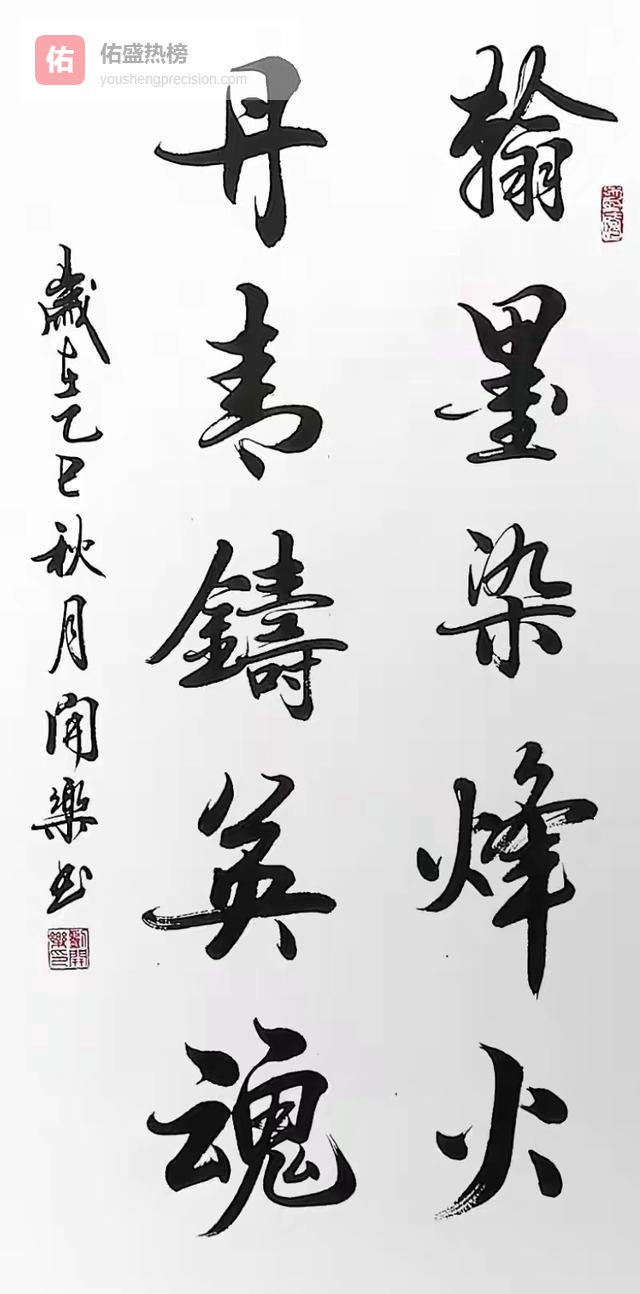 佑 佑盛热榜
youshengprecision.com
翰墨染烽火
丹青鑄英魂
歲在乙巳秋月開樂书
劉開樂印